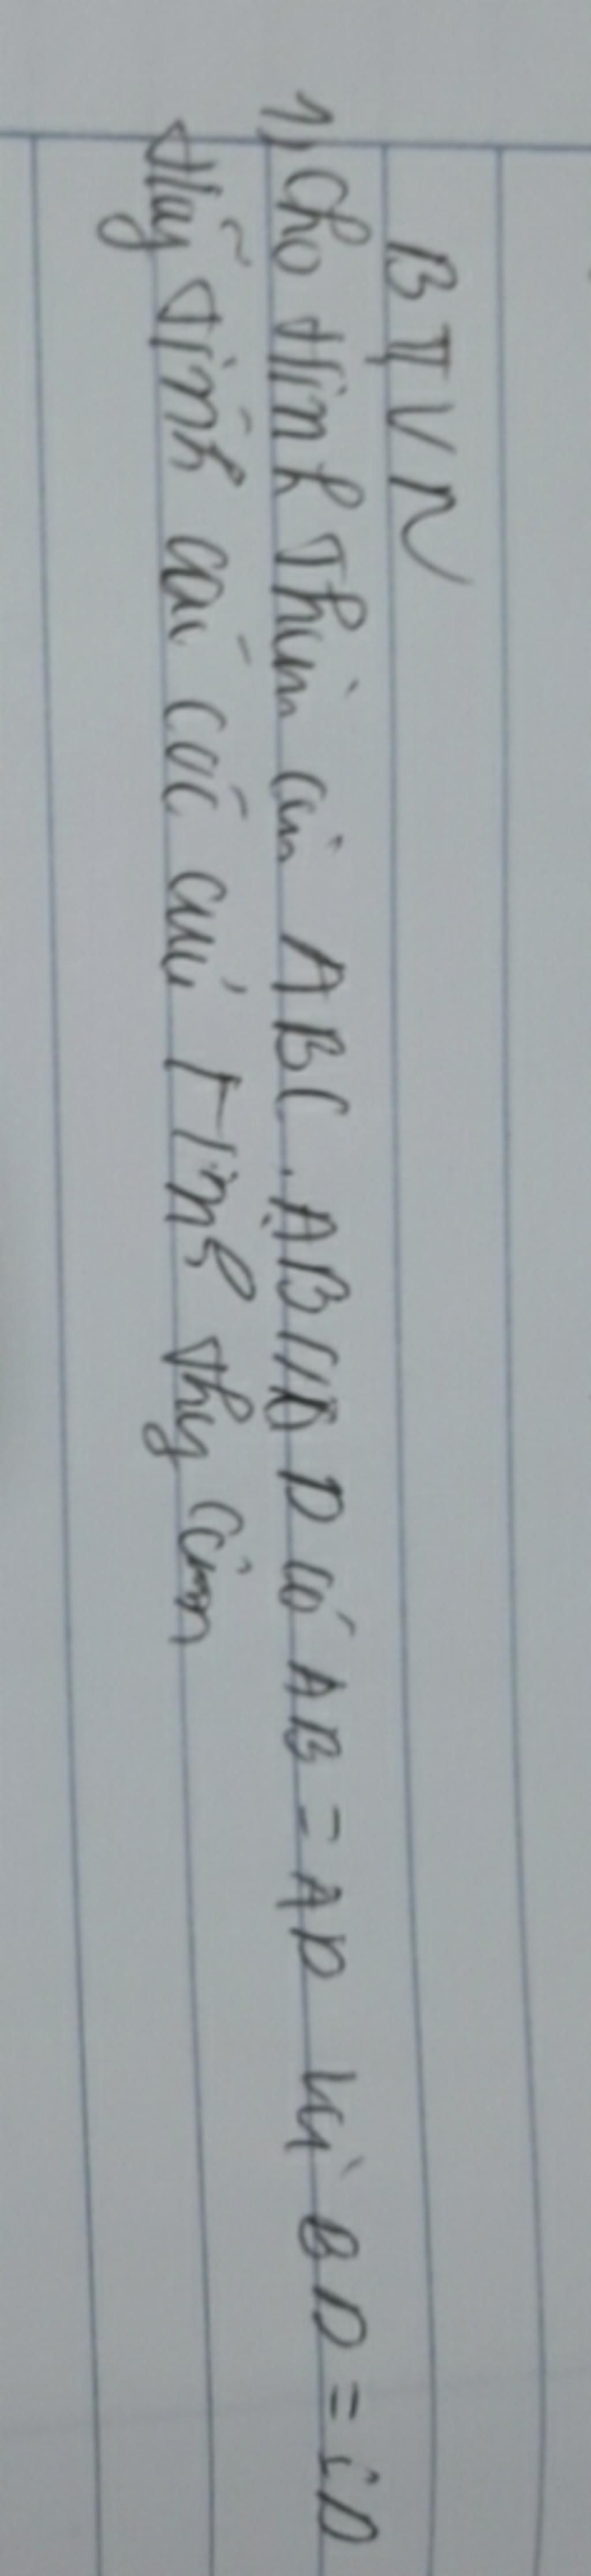 BTVN
1, Cho Hình Thang cân ABC. AB // D có AB = AD và BD = CD
Hãy Tính các Góc của Hình Thang cân